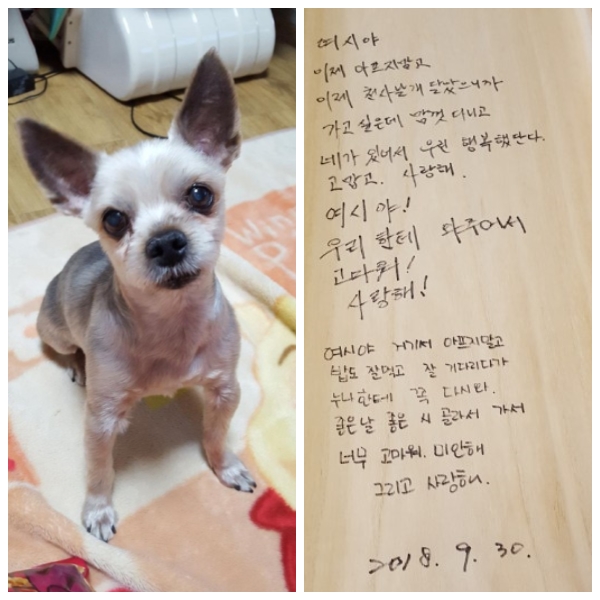 여시야
이제 아프지말고
이제 천사날개 달았으니까
가고 싶은데 맘껏 다니고
네가 있어서 우린 행복했단다.
고맙고. 사랑해.
여시야!
우리 한테 와주어서
고마워!
사랑해!
여시야 거기서 아프지말고
밥도 잘먹고 잘 기다리다가
누나한테 꼭 다시와.
좋은날 좋은 시 골라서 가서
너무 고마워. 미안해
그리고 사랑해.
2018. 9. 30.
Win